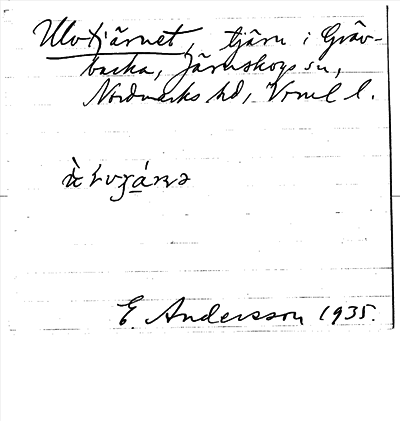 Ulvtjärnet, tjärn i Gräv-
backa, Järnskogs sn,
Nordmarks hd, Vrml l.
E. Andersson 1935.